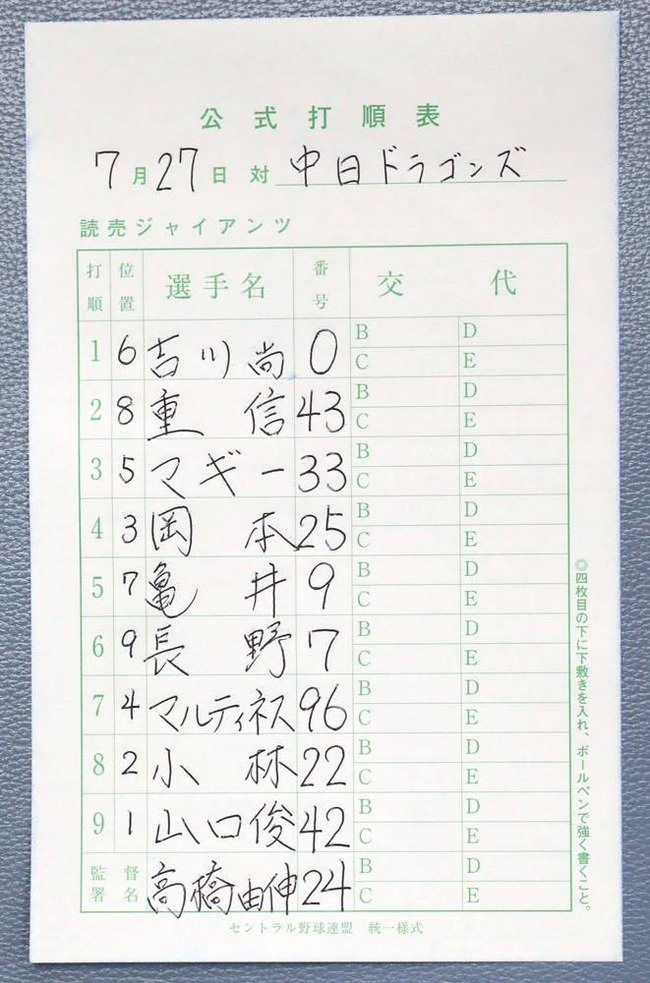 公式打順表
7月27日 対 中日ドラゴンズ
読売ジャイアンツ
打順 位置 選手名 番号 交代
1 6 吉川尚 0 B D C E
2 8 重信 43 B D C E
3 5 マギー 33 B D C E
4 3 岡本 25 B D C E
5 7 亀井 9 B D C E
6 9 長野 7 B D C E
7 4 マルティネス 96 B D C E
8 2 小林 22 B D C E
9 1 山口俊 42 B D C E
監督署名 高橋由伸 24 B D C E
セントラル野球連盟 統一様式
◎四枚目の下に下敷きを入れ、ボールペンで強く書くこと。